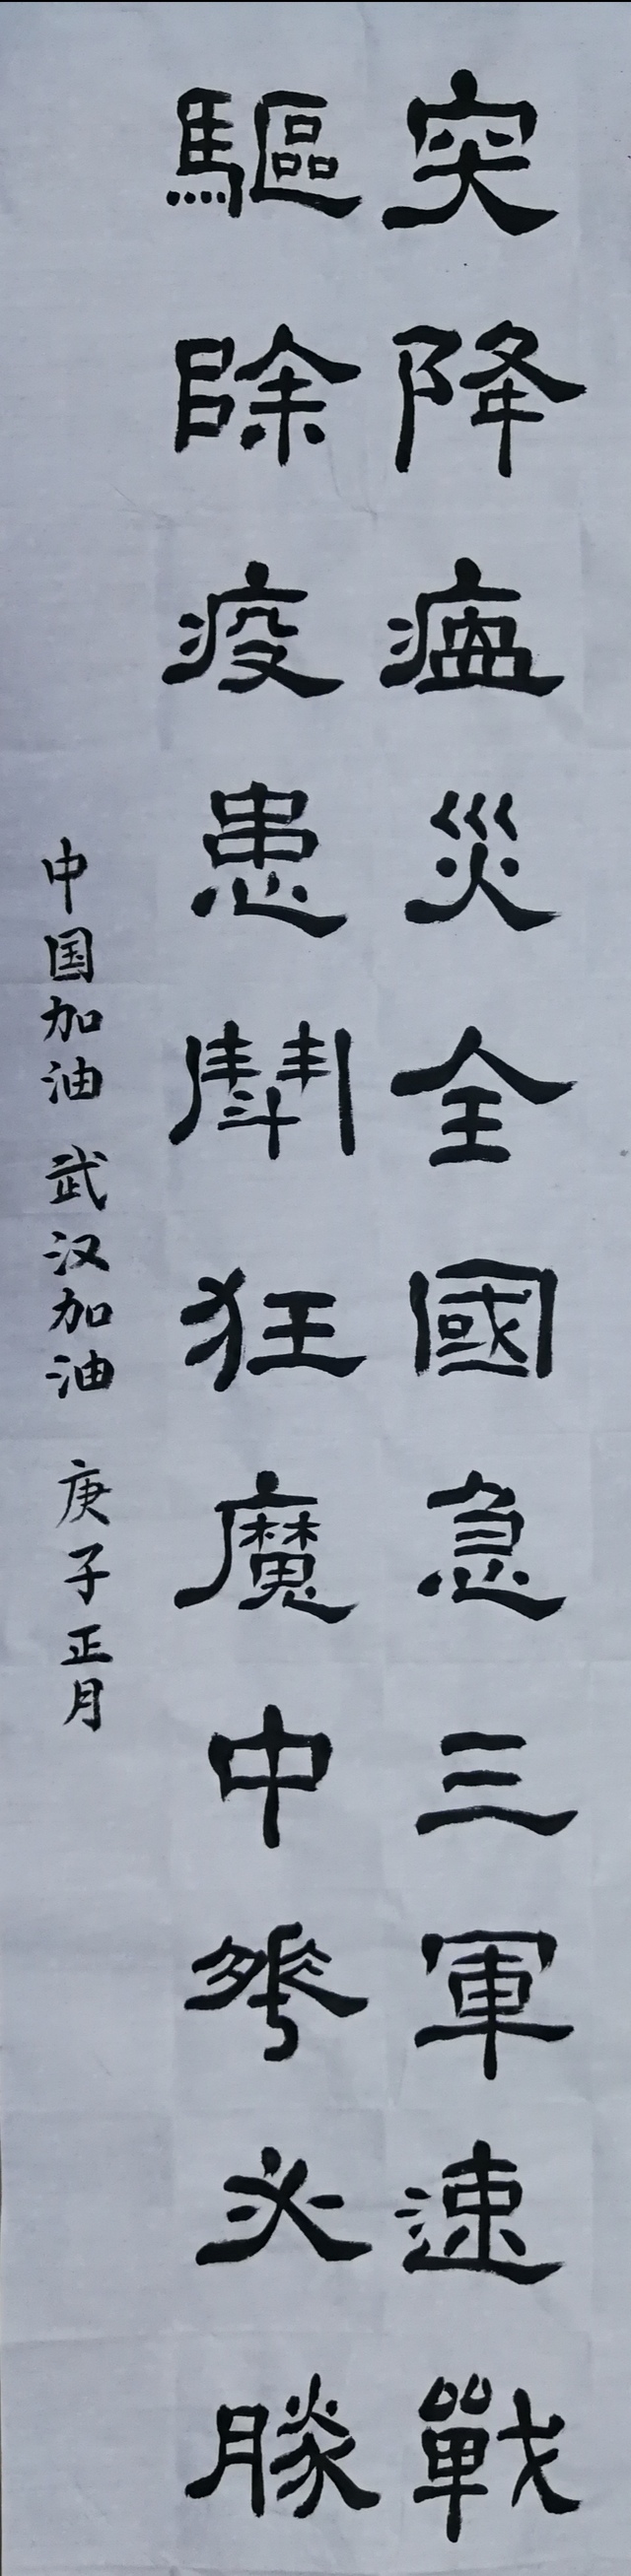 突降瘟災全國急三軍速戰
驅除疫患鬪狂魔中華必勝
中国加油 武汉加油 庚子正月